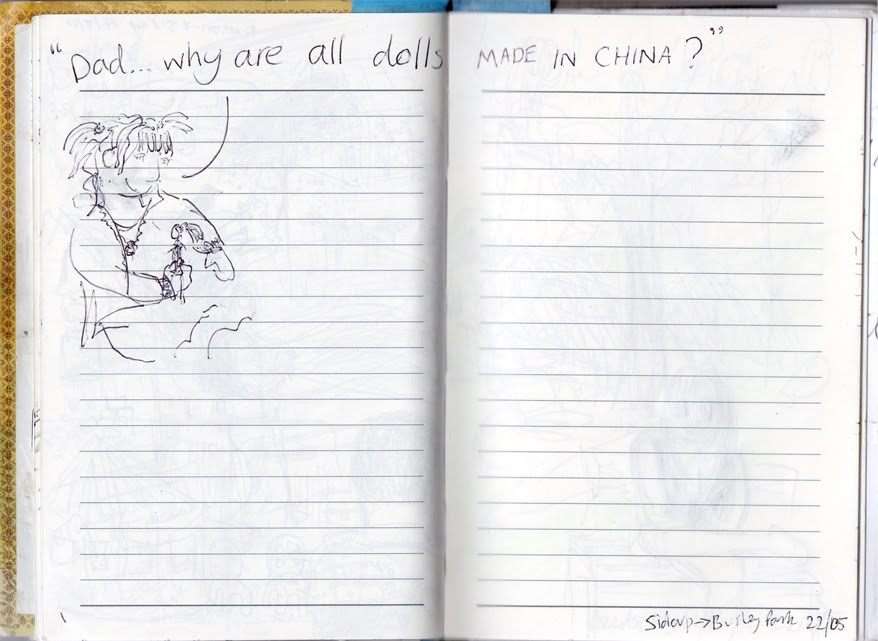 "Dad... why are all dolls MADE IN CHINA?"
Sidcup→Burley Park 22/05